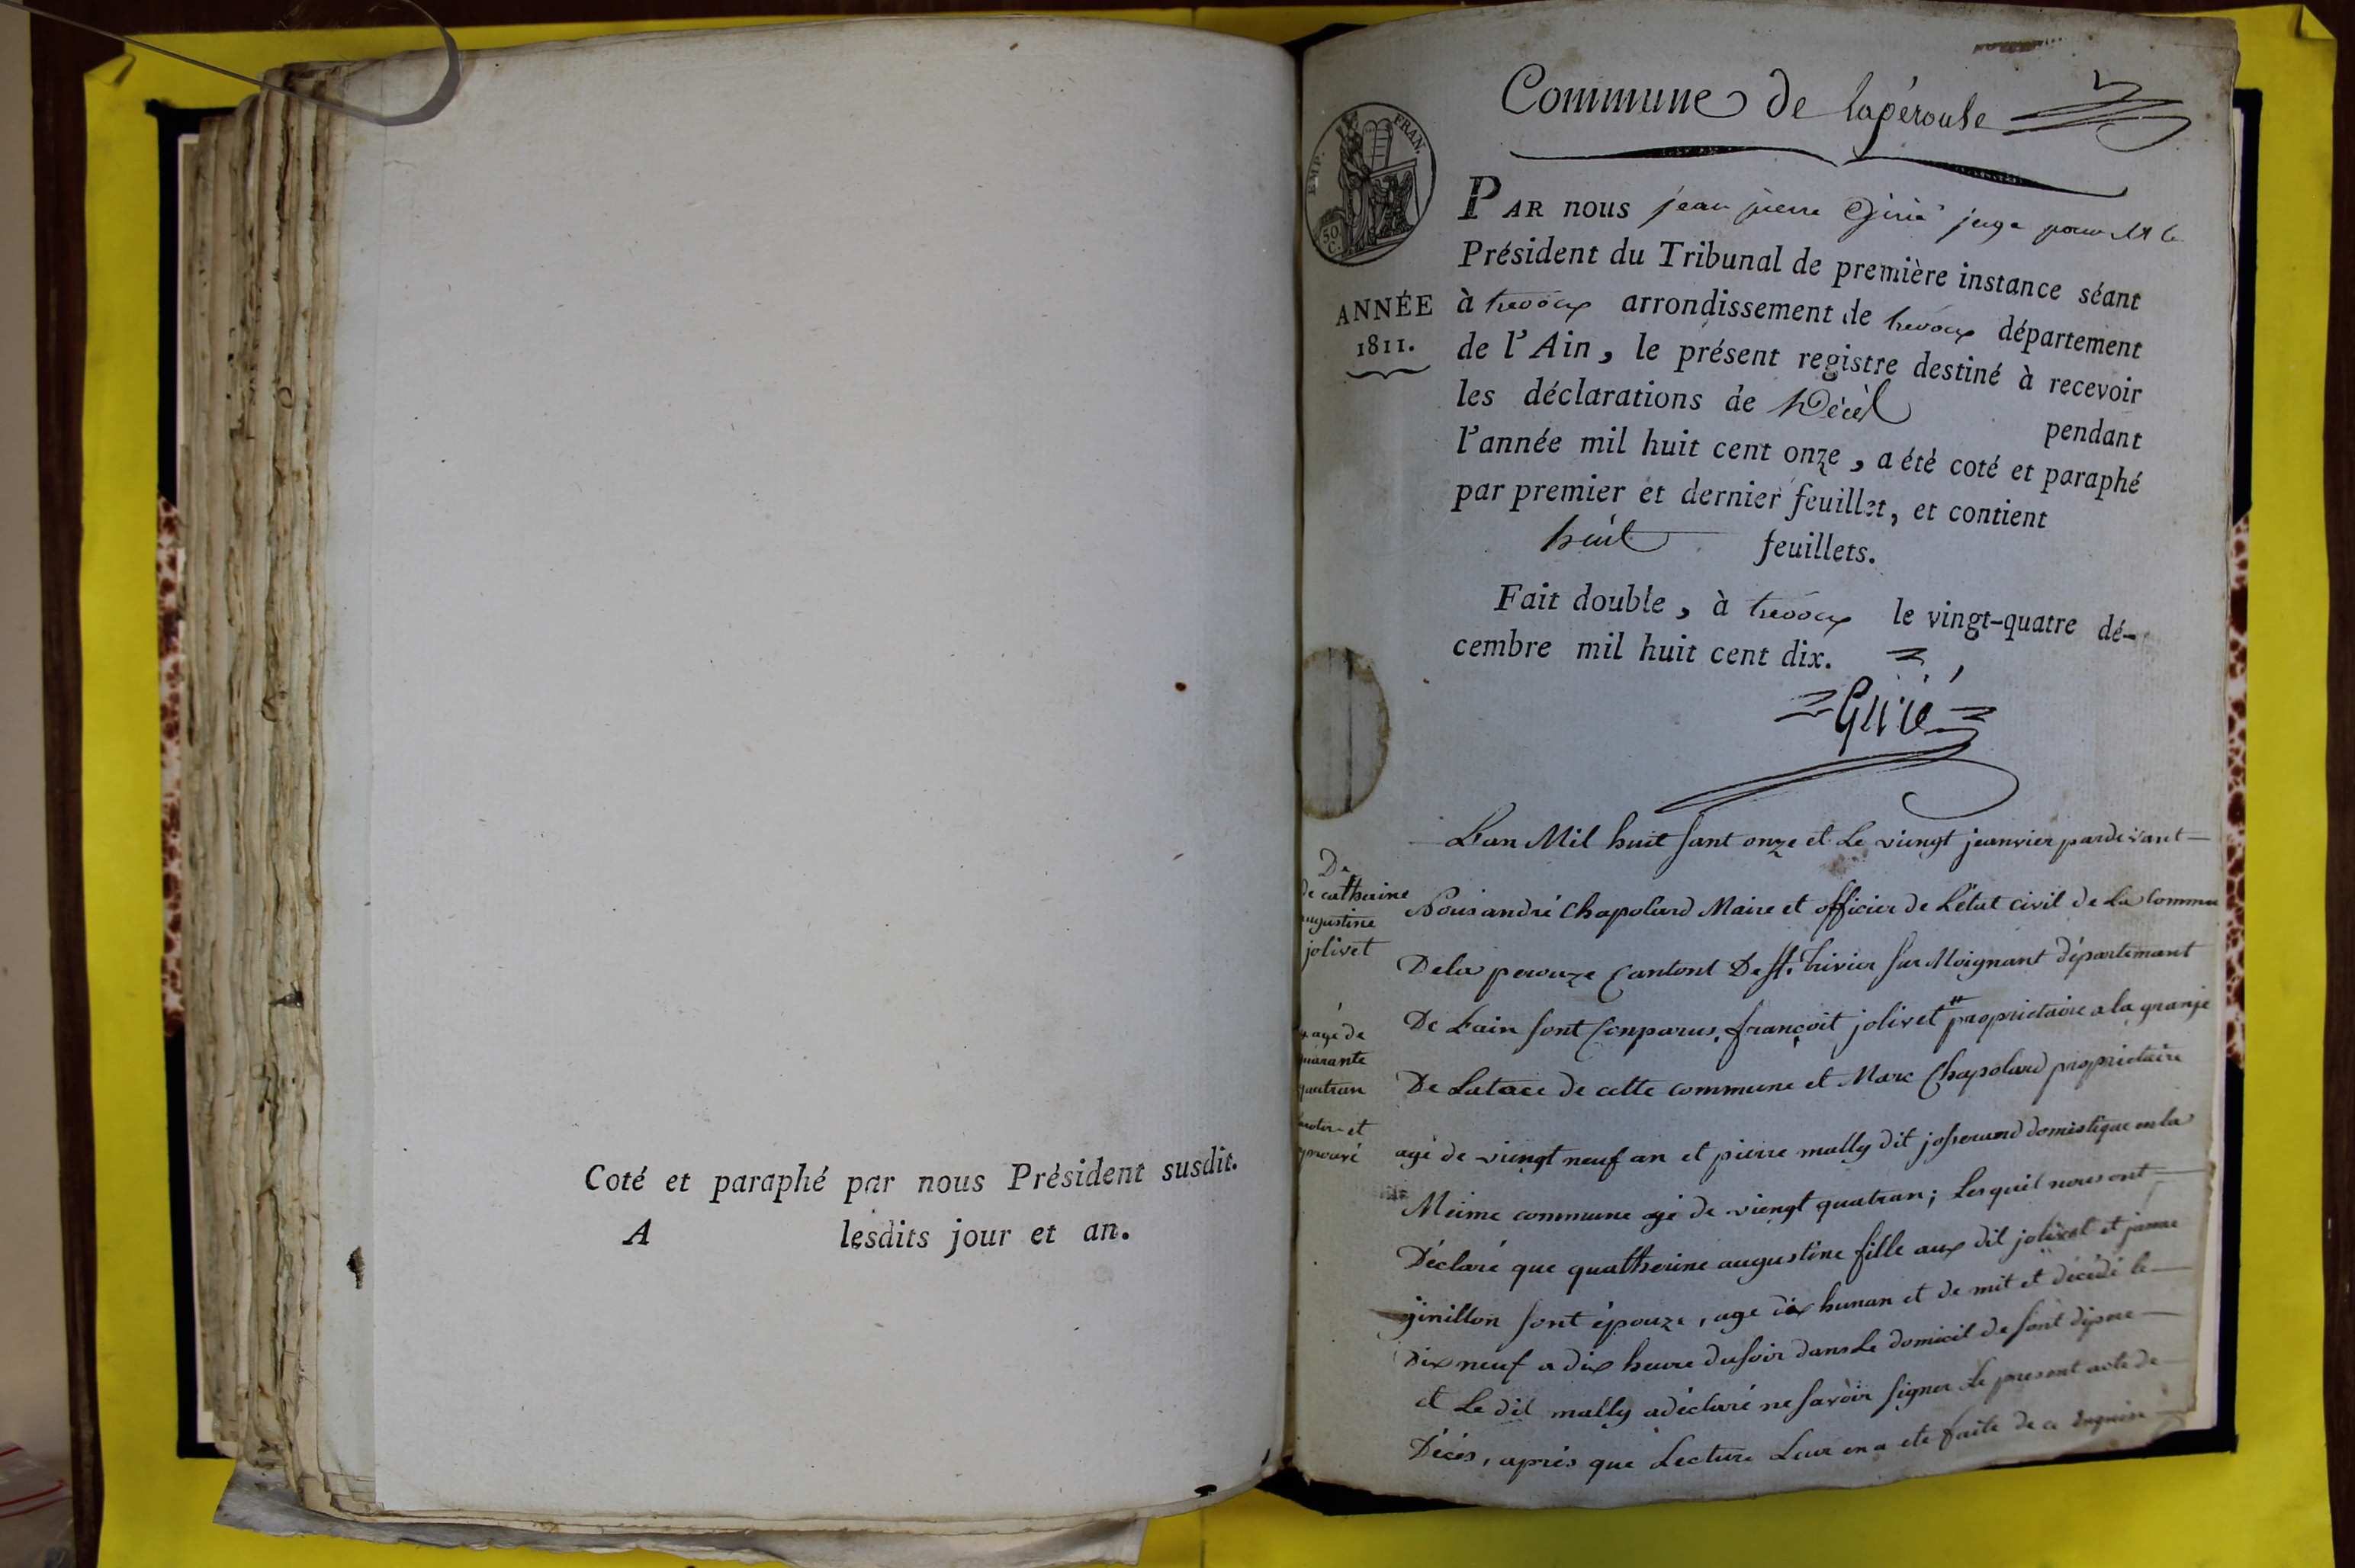 Coté et paraphé par nous Président susdit.
A lesdits jour et an.
Commune de lapérouse
EMP. FRAN.
50 C.
ANNÉE
1811.
PAR nous jean pierre Girié juge pour Mr le
Président du Tribunal de première instance séant
à trevoux arrondissement de trevoux département
de l'Ain, le présent registre destiné à recevoir
les déclarations de Décès pendant
l'année mil huit cent onze, a été coté et paraphé
par premier et dernier feuillet, et contient
huit feuillets.
Fait double, à trevoux le vingt-quatre dé-
cembre mil huit cent dix.
Girié
De
de catherine
augustine
jolivet
agé de
quarante
quatran
et
L'an Mil huit sant onze et Le viengt jeanvier pardevant
Nous andré Chapolard Maire et officier de L'état civil de La Commu
Dela perouze Cantont De St. trivier sur Moignant départemant
De Lain sont Conparus, françoit jolivet # propriétaire a la granje
De Latace de cette commune et Marc Chapolard propriétaire
agé de viengt neuf an et pierre mally dit josserand domestique en la
Meime commune agé de viengt quatran; Lesquil nous ont
Déclaré que quatherine augustine fille aux dit jolivet et janne
ginillon sont épouze, age dix hunan et de mit et décédé le
Dix neuf a dix heure du soir dans Le domicil de sont dipere
et Le dit mally a déclaré ne savoir signer Le present acte de
Décés, aprés que Lecture Leur en a ete faite de ce